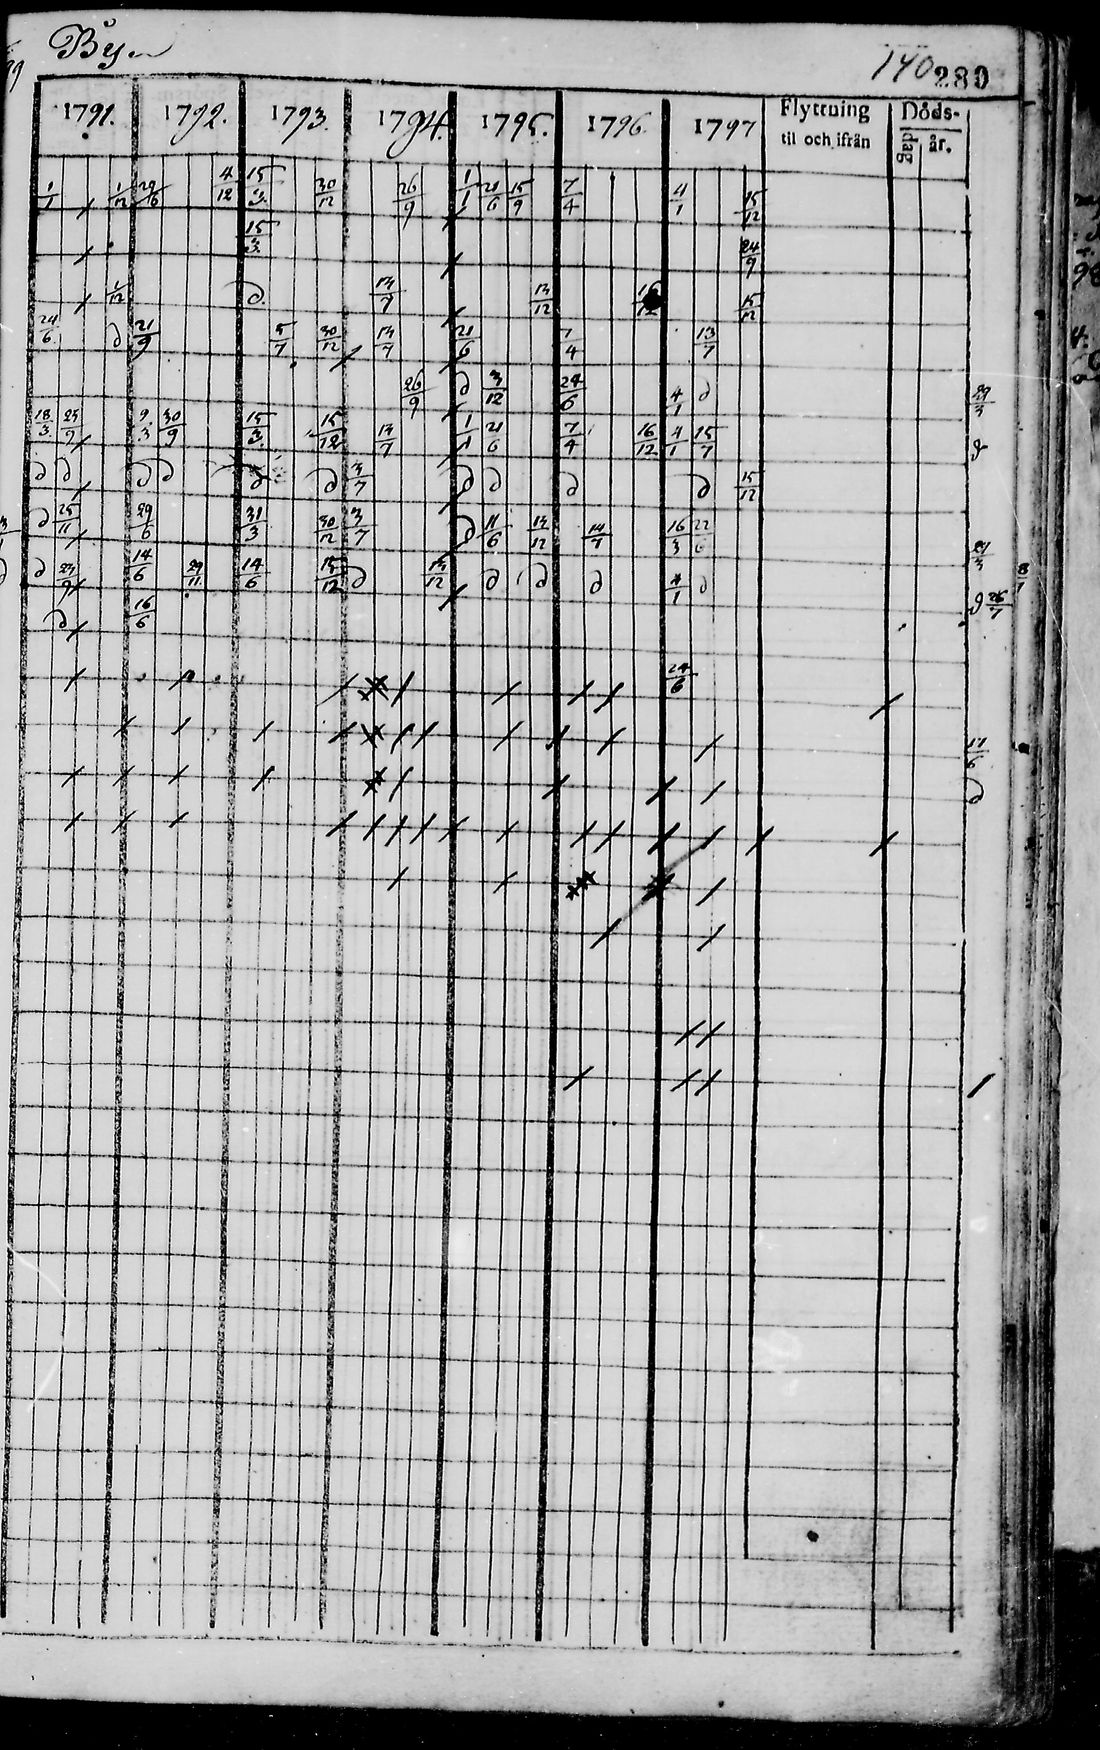 By
140 280
1791. 1792. 1793. 1794. 1795. 1796. 1797 Flyttning til och ifrån Döds- dag år.
1/1 1/12 29/6 4/12 15/3 30/12 26/9 1/1 21/6 15/9 7/4 4/1 15/12
15/3 24/9
1/12 d. 13/7 13/12 16/12 15/12
24/6 d 21/9 5/7 30/12 13/7 21/6 7/4 13/7
26/9 d 3/12 24/6 4/1 d 29/3
18/3 23/9 9/3 30/9 15/3 15/12 13/7 1/1 21/6 7/4 16/12 4/1 15/7 d
d d d d d d 3/7 d d d d 15/12
d 25/11 29/6 31/3 30/12 3/7 d 11/6 13/12 14/7 16/3 22/6
d 23/9 14/6 29/11 14/6 15/12 d 13/12 d d d 4/1 d 27/3 8/1
d 16/6 d 26/7
24/6
17/6
d